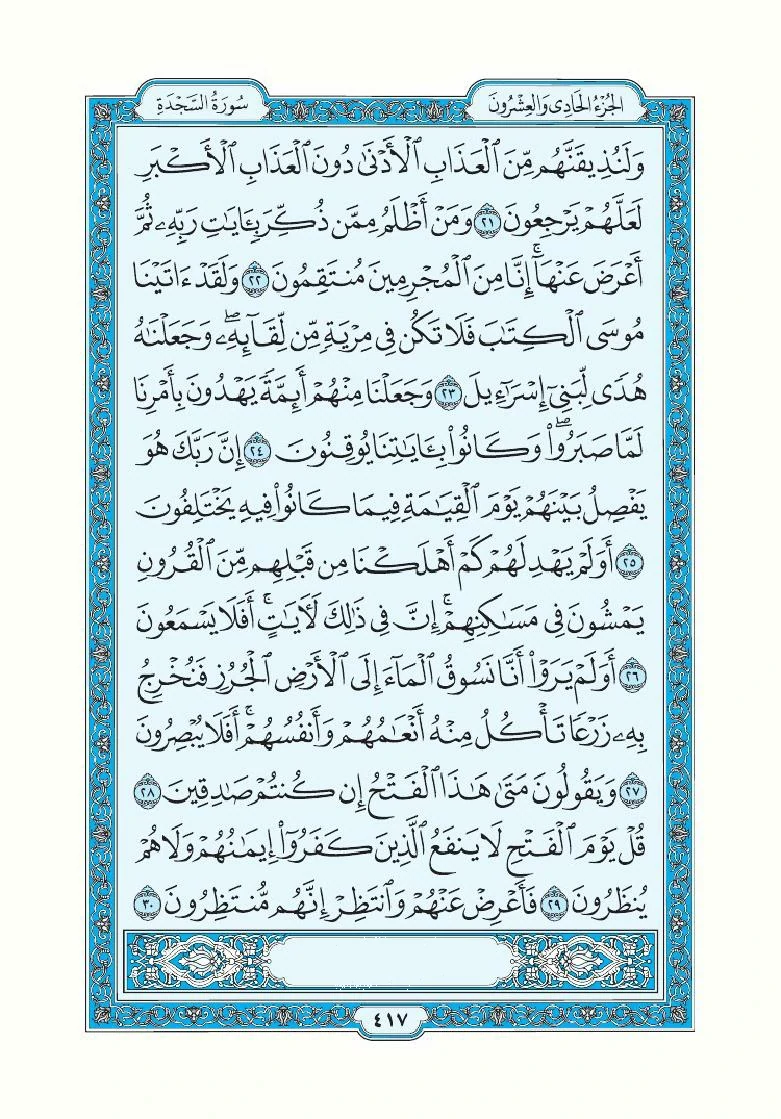 الجُزْءُ الحَادِى وَالعِشْرُونَ
سُورَةُ السَّجْدَةِ
وَلَنُذِيقَنَّهُم مِّنَ ٱلْعَذَابِ ٱلْأَدْنَىٰ دُونَ ٱلْعَذَابِ ٱلْأَكْبَرِ
لَعَلَّهُمْ يَرْجِعُونَ ٢١ وَمَنْ أَظْلَمُ مِمَّن ذُكِّرَ بِـَٔايَٰتِ رَبِّهِۦ ثُمَّ
أَعْرَضَ عَنْهَآ ۚ إِنَّا مِنَ ٱلْمُجْرِمِينَ مُنتَقِمُونَ ٢٢ وَلَقَدْ ءَاتَيْنَا
مُوسَى ٱلْكِتَٰبَ فَلَا تَكُن فِى مِرْيَةٍ مِّن لِّقَآئِهِۦ ۖ وَجَعَلْنَٰهُ
هُدًى لِّبَنِىٓ إِسْرَٰٓءِيلَ ٢٣ وَجَعَلْنَا مِنْهُمْ أَئِمَّةً يَهْدُونَ بِأَمْرِنَا
لَمَّا صَبَرُوا۟ ۖ وَكَانُوا۟ بِـَٔايَٰتِنَا يُوقِنُونَ ٢٤ إِنَّ رَبَّكَ هُوَ
يَفْصِلُ بَيْنَهُمْ يَوْمَ ٱلْقِيَٰمَةِ فِيمَا كَانُوا۟ فِيهِ يَخْتَلِفُونَ
٢٥ أَوَلَمْ يَهْدِ لَهُمْ كَمْ أَهْلَكْنَا مِن قَبْلِهِم مِّنَ ٱلْقُرُونِ
يَمْشُونَ فِى مَسَٰكِنِهِمْ ۚ إِنَّ فِى ذَٰلِكَ لَـَٔايَٰتٍ ۖ أَفَلَا يَسْمَعُونَ
٢٦ أَوَلَمْ يَرَوْا۟ أَنَّا نَسُوقُ ٱلْمَآءَ إِلَى ٱلْأَرْضِ ٱلْجُرُزِ فَنُخْرِجُ
بِهِۦ زَرْعًا تَأْكُلُ مِنْهُ أَنْعَٰمُهُمْ وَأَنفُسُهُمْ ۖ أَفَلَا يُبْصِرُونَ
٢٧ وَيَقُولُونَ مَتَىٰ هَٰذَا ٱلْفَتْحُ إِن كُنتُمْ صَٰدِقِينَ ٢٨
قُلْ يَوْمَ ٱلْفَتْحِ لَا يَنفَعُ ٱلَّذِينَ كَفَرُوٓا۟ إِيمَٰنُهُمْ وَلَا هُمْ
يُنظَرُونَ ٢٩ فَأَعْرِضْ عَنْهُمْ وَٱنتَظِرْ إِنَّهُم مُّنتَظِرُونَ ٣٠
٤١٧